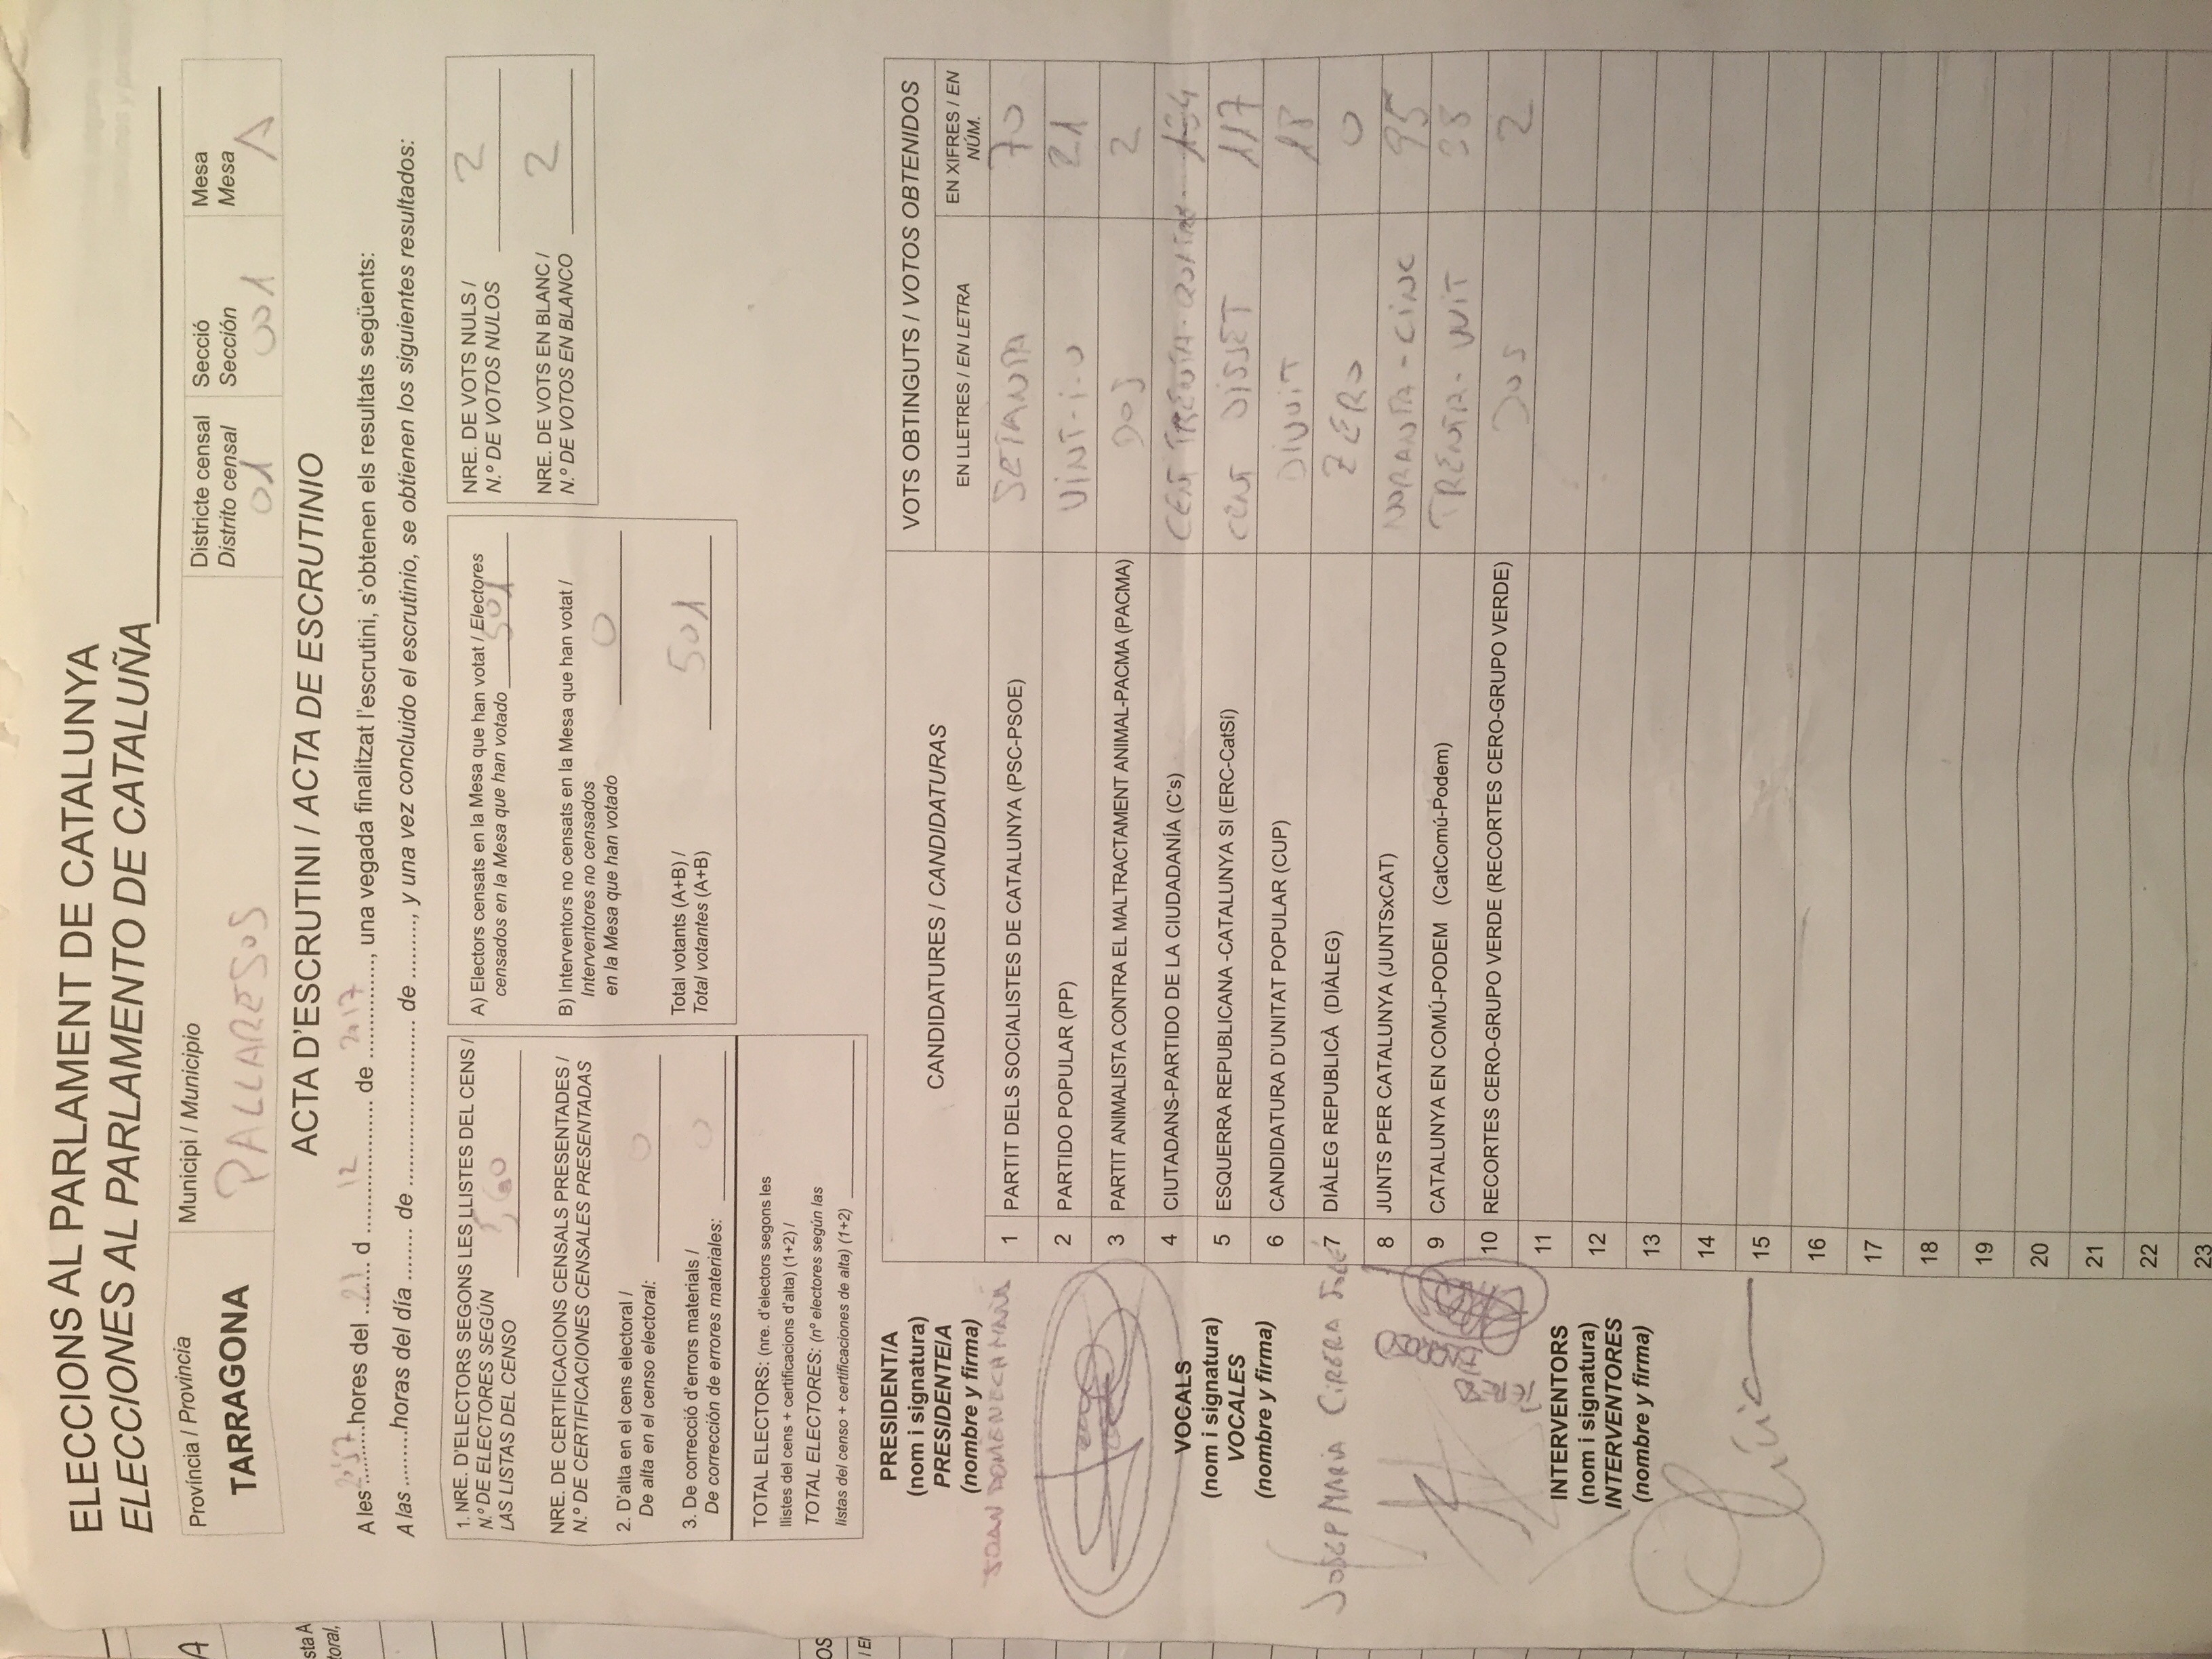 ELECCIONS AL PARLAMENT DE CATALUNYA
ELECCIONES AL PARLAMENTO DE CATALUÑA
Província / Provincia
TARRAGONA
Municipi / Municipio
PALLARESOS
Districte censal
Distrito censal
01
Secció
Sección
001
Mesa
Mesa
A
ACTA D'ESCRUTINI / ACTA DE ESCRUTINIO
A les 20'57 hores del 21 d 12 de 2017, una vegada finalitzat l'escrutini, s'obtenen els resultats següents:
A las .........horas del día ........ de ........................ de ........., y una vez concluido el escrutinio, se obtienen los siguientes resultados:
1. NRE. D'ELECTORS SEGONS LES LLISTES DEL CENS /
N.º DE ELECTORES SEGÚN
LAS LISTAS DEL CENSO
NRE. DE CERTIFICACIONS CENSALS PRESENTADES /
N.º DE CERTIFICACIONES CENSALES PRESENTADAS
2. D'alta en el cens electoral /
De alta en el censo electoral: 0
3. De correcció d'errors materials /
De corrección de errores materiales: 0
TOTAL ELECTORS: (nre. d'electors segons les
llistes del cens + certificacions d'alta) (1+2) /
TOTAL ELECTORES: (nº electores según las
listas del censo + certificaciones de alta) (1+2)
A) Electors censats en la Mesa que han votat / Electores
censados en la Mesa que han votado 501
B) Interventors no censats en la Mesa que han votat /
Interventores no censados
en la Mesa que han votado 0
Total votants (A+B) /
Total votantes (A+B) 501
NRE. DE VOTS NULS /
N.º DE VOTOS NULOS 2
NRE. DE VOTS EN BLANC /
N.º DE VOTOS EN BLANCO 2
PRESIDENT/A
(nom i signatura)
PRESIDENTE/A
(nombre y firma)
JOAN DOMENECH MAÑÁ
VOCALS
(nom i signatura)
VOCALES
(nombre y firma)
JOSEP MARIA CIRERA
TERESA
BARROSO
INTERVENTORS
(nom i signatura)
INTERVENTORES
(nombre y firma)
CANDIDATURES / CANDIDATURAS
VOTS OBTINGUTS / VOTOS OBTENIDOS
EN LLETRES / EN LETRA
EN XIFRES / EN
NÚM.
1 PARTIT DELS SOCIALISTES DE CATALUNYA (PSC-PSOE) SETANTA 70
2 PARTIDO POPULAR (PP) VINT-I-U 21
3 PARTIT ANIMALISTA CONTRA EL MALTRACTAMENT ANIMAL-PACMA (PACMA) DOS 2
4 CIUTADANS-PARTIDO DE LA CIUDADANÍA (C's) CENT TRENTA-QUATRE 134
5 ESQUERRA REPUBLICANA -CATALUNYA SI (ERC-CatSí) CENT DISSET 117
6 CANDIDATURA D'UNITAT POPULAR (CUP) DIVUIT 18
7 DIÀLEG REPUBLICÀ (DIÀLEG) ZERO 0
8 JUNTS PER CATALUNYA (JUNTSxCAT) NORANTA-CINC 95
9 CATALUNYA EN COMÚ-PODEM (CatComú-Podem) TRENTA-VUIT 38
10 RECORTES CERO-GRUPO VERDE (RECORTES CERO-GRUPO VERDE) DOS 2
11
12
13
14
15
16
17
18
19
20
21
22
23